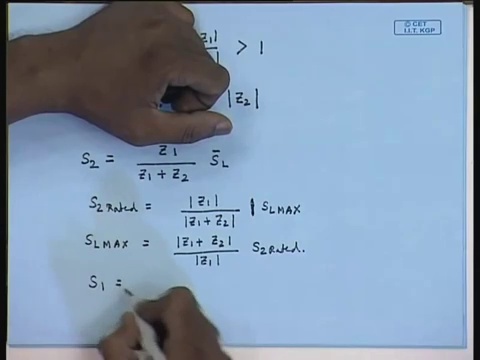 © CET
I.I.T. KGP
|z1| > 1
|z2|
S2 = z1 / (z1 + z2) S̄L
S2 Rated = |z1| / |z1 + z2| SLMAX
SLMAX = |z1 + z2| / |z1| S2 Rated.
S1 =